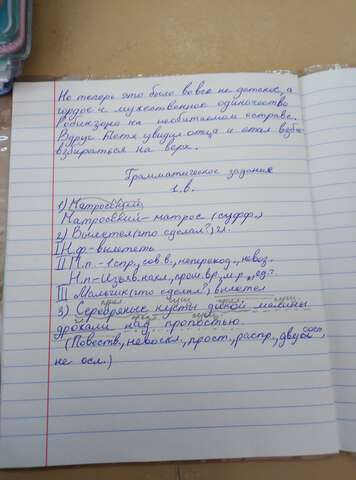 Но теперь это было вовсе не детское, а
гордое и мужественное одиночество
Робинзона на необитаемом острове.
Вдруг Петя увидил отца и стал
взбираться на верх.
Грамматическое задание
1.в.
1) Матросский
Матросский – матрос (суфф.)
2) Вылетел (что сделал?) гл.
I Н.ф - вылететь
II П.п. - 1 спр., сов в., неперехед., невоз.
Н.п - Изъяв. накл., прош. вр., м.р., ед.
III Мальчик (что сделал?) вылетел
прил сущ прил сущ
3) Серебряные кусты дикой малины
гл сущ
дрожали над пропостью.
(Повеств., невоскл., прост., распр., двусост,
не осл.)